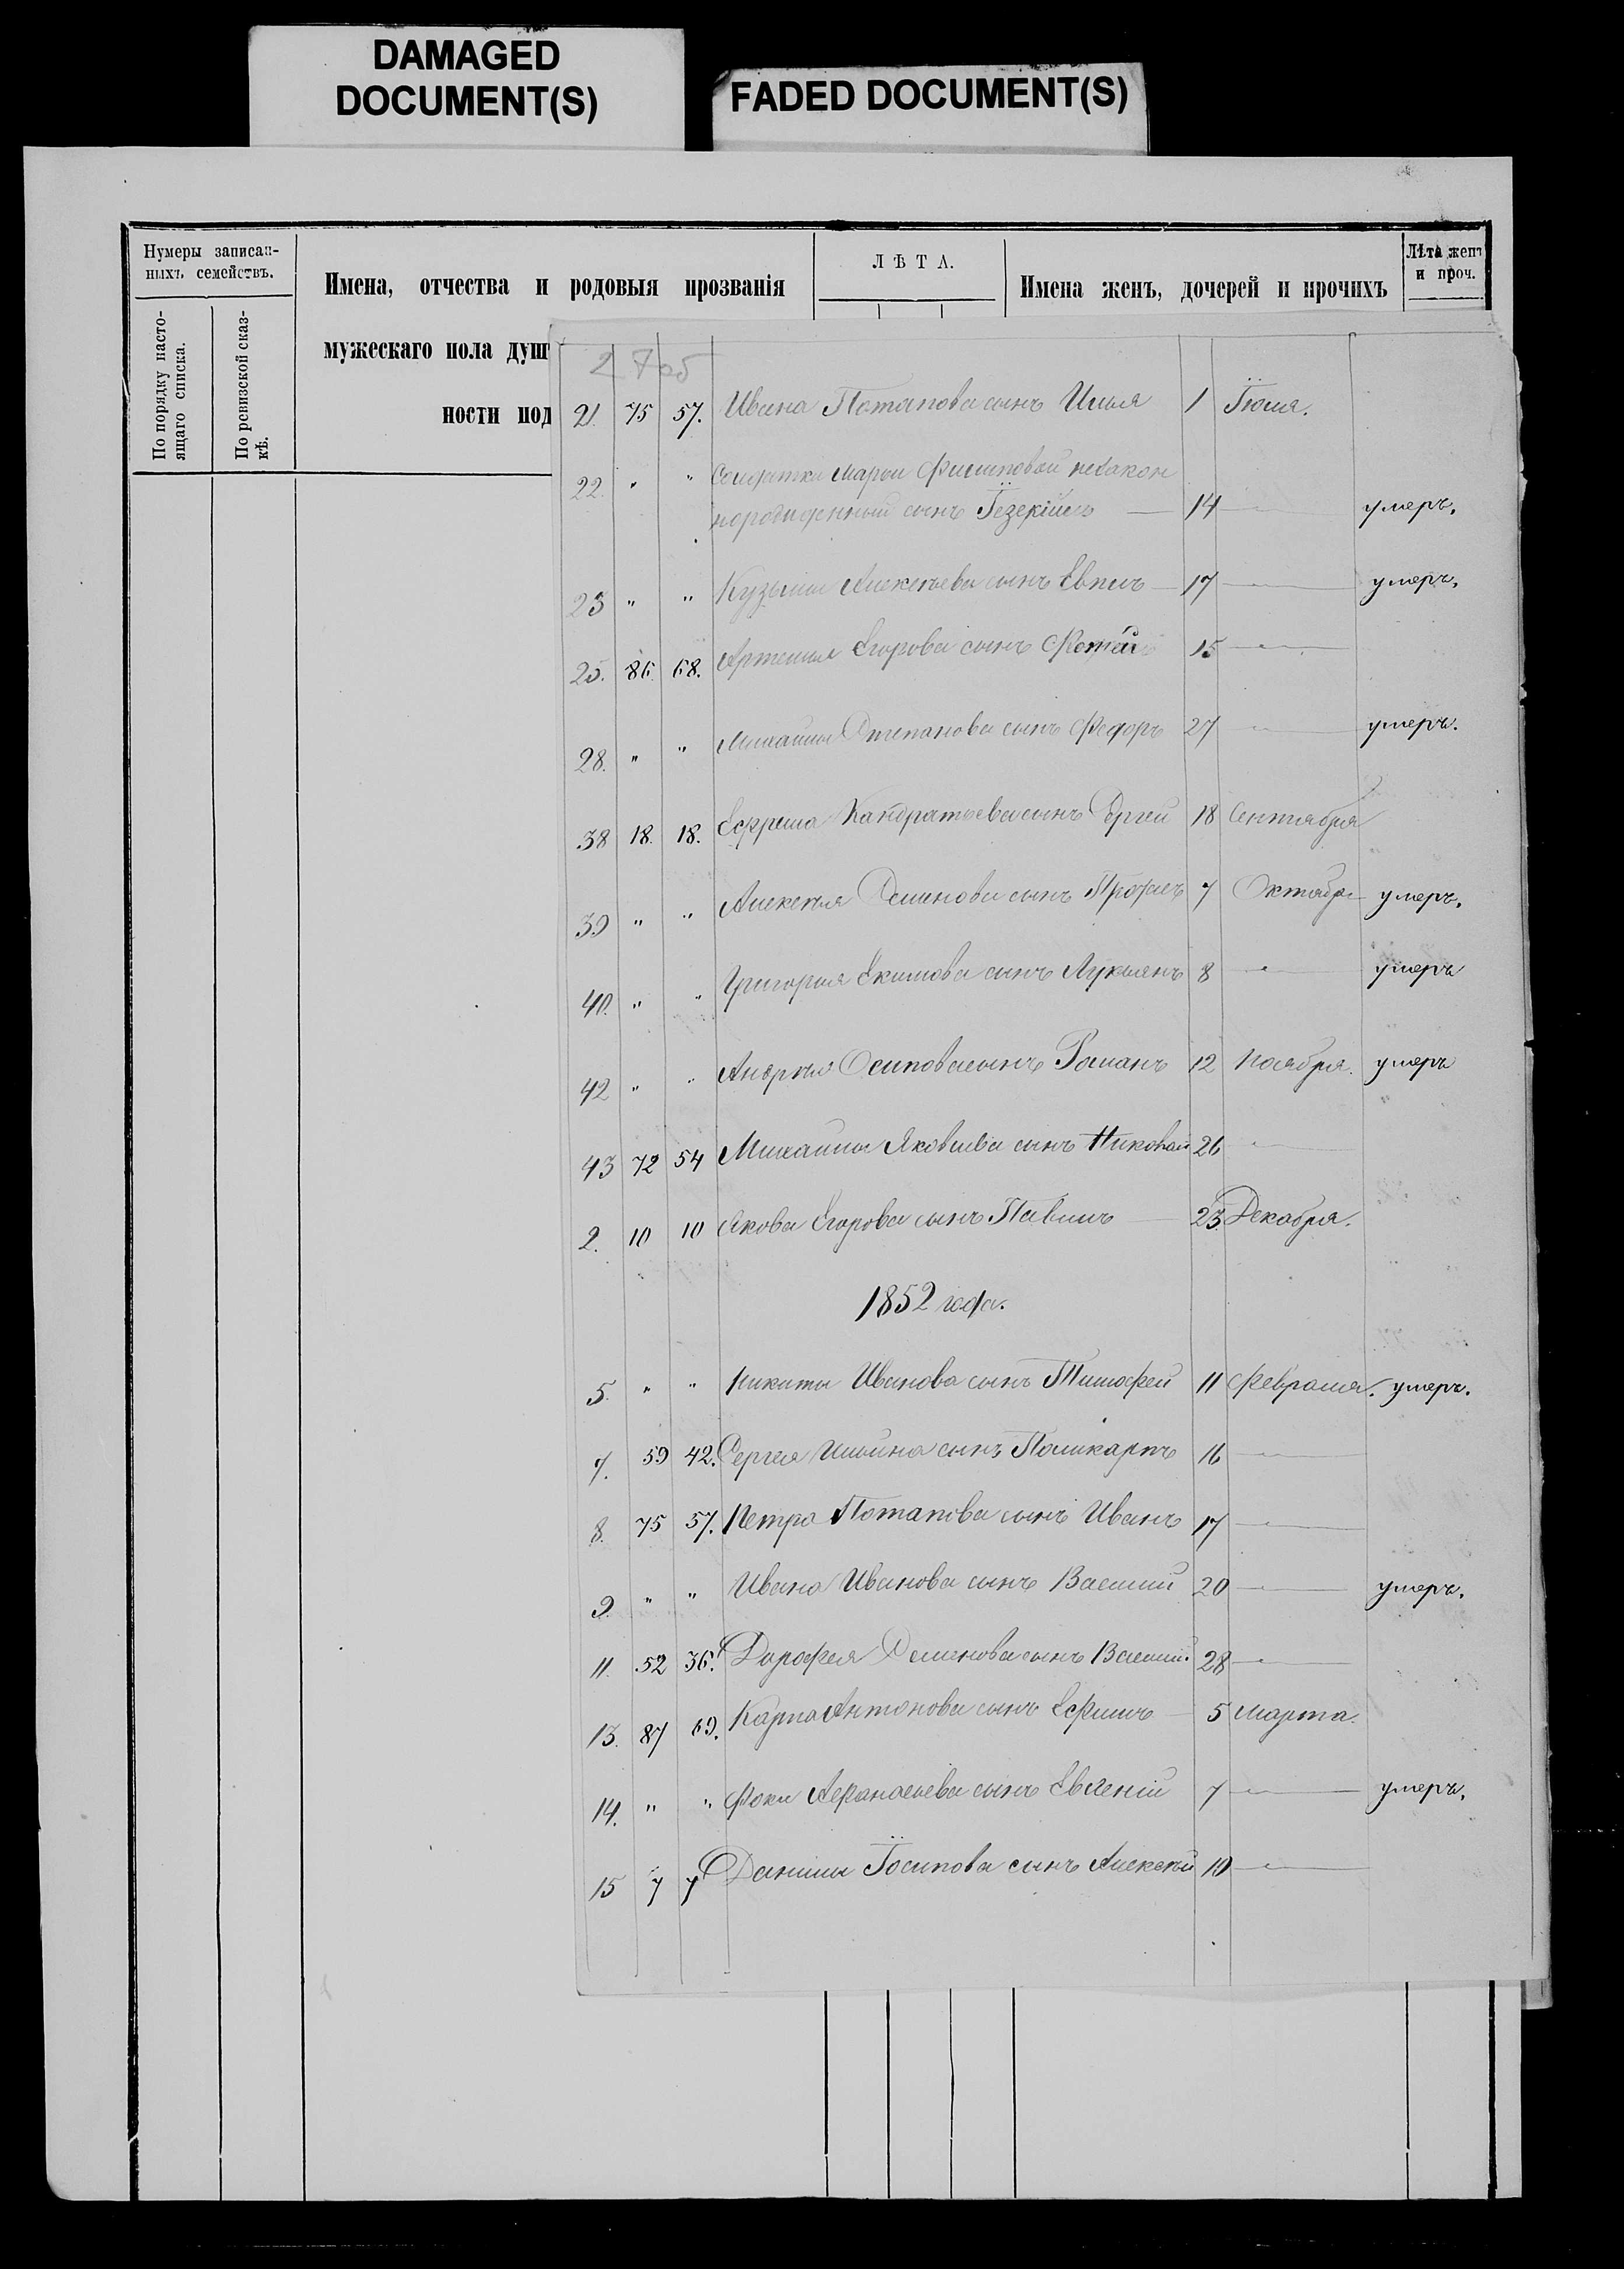 DAMAGED
DOCUMENT(S)
FADED DOCUMENT(S)
Нумеры записан-
ныхъ семействъ.
По порядку насто-
ящаго списка.
По ревизской сказ-
кѣ.
Имена, отчества и родовыя прозванія
мужескаго пола душ
ности под
ЛѢТА.
Имена женъ, дочерей и прочихъ
Лѣта женъ
и проч.
21. 75 57. Ивана Потапова сынъ Илья 1 Іюля.
22. " " Солдатки Марьи Филиповой незакон
норожденный сынъ Іезекіиль 14 — умеръ.
23 " " Кузьмы Алексѣева сынъ 17 — умеръ.
25. 86. 68. Артемья Егорова сынъ 15 —
28. " " Михаила Степанова сынъ Федоръ 27 — умеръ.
38 18. 18. Ефрема Кандратьева сынъ Сергей 18 Сентября
39 " " Алексѣя Семенова сынъ Трофимъ 7 Октября умеръ.
40. " " Григорья Екимова сынъ Лукьянъ 8 — умеръ
42 " " Андрѣя Осипова сынъ Романъ 12 Ноября. умеръ
43 72 54 Михаила Яковлева сынъ Николай 26 —
2. 10 10 Якова Егорова сынъ Павелъ 23 Декабря.
1852 года.
5. " " Никиты Иванова сынъ Тимофей 11 Февраля. умеръ.
7. 59 42. Сергея Ильина сынъ Поликарпъ 16 —
8. 75 57. Петра Потапова сынъ Иванъ 17 —
9. " " Ивана Иванова сынъ Василий 20 — умеръ.
11. 52 36. Дорофея Семенова сынъ Василий. 28 —
13. 87 69. Карпа Антонова сынъ Ефимъ 5 Марта.
14. " " Фоки Афанасьева сынъ Евгеній 7 — умеръ.
15 7 7 Данилы Іосипова сынъ Алексѣй 10 —